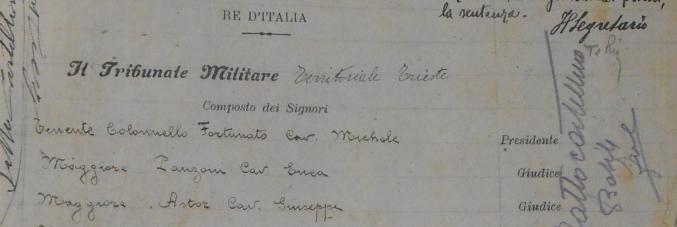 RE D'ITALIA
la sentenza.
Il Segretario
Il Tribunale Militare Territoriale Trieste
Composto dei Signori
Tenente Colonnello Fortunato Cav. Michele Presidente
Maggiore Panzoni Cav. Enea Giudice
Maggiore Astor Cav. Giuseppe Giudice
Fatto cartellino